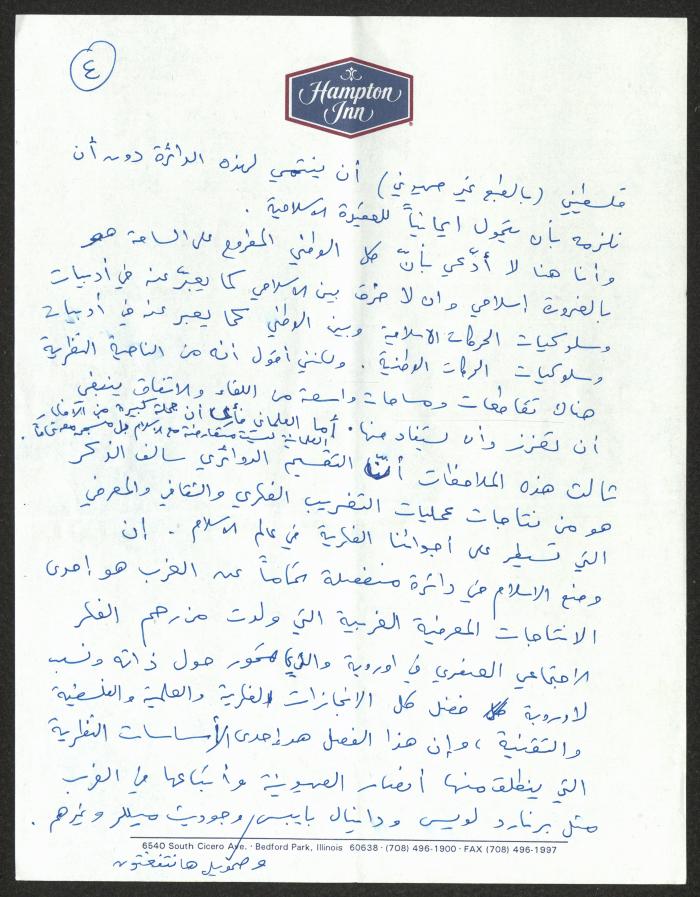 ٤
Hampton
Inn
فلسطيني (بالطبع غير صهيوني) أن ينتمي لهذه الدائرة دون أن
نلزمه بأن يتحول ايمانياً للعقيدة الاسلامية .
وأنا هنا لا أدّعي بأنّ كل الوطني المطروح على الساحة هو
بالضرورة إسلامي وان لا فرق بين الاسلامي كما يعبّر عنه في أدبيات
وسلوكيات الحركات الاسلامية وبين الوطني كما يعبر عنه في أدبيات
وسلوكيات الحركات الوطنية . ولكنني أقول أنه من الناحية النظرية
هناك تقاطعات ومساحات واسعة من اللقاء والاتفاق ينبغي
أن تعزز وأن يستفاد منها . أما العلماني فأرى أن جملة كبيرة من الأفكار
العلمانية ليست متعارضة مع الاسلام
ثالث هذه الملاحظات أنّ التقسيم الدوائري سالف الذكر
هو من نتاجات عمليات التغريب الفكري والثقافي والمعرفي
التي تسيطر على أجوائنا الفكرية في عالم الاسلام . إن
وضع الاسلام في دائرة منفصلة تماماً عن الغرب هو إحدى
الانتاجات المعرفية الغربية التي ولدت من رحم الفكر
الاجتماعي العنصري في اوروبة والذي تمحور حول ذاته ونسب
لاوروبة فضل كل الانجازات الفكرية والعلمية والفلسفية
والتقنية ، وإن هذا الفصل هو إحدى الأساسات النظرية
التي ينطلق منها أنصار الصهيونية وأتباعها في الغرب
مثل برنارد لويس ودانيال بايبس وجوديث ميللر وغيرهم .
وصمويل هانتنغتون
6540 South Cicero Ave. · Bedford Park, Illinois 60638 · (708) 496-1900 · FAX (708) 496-1997